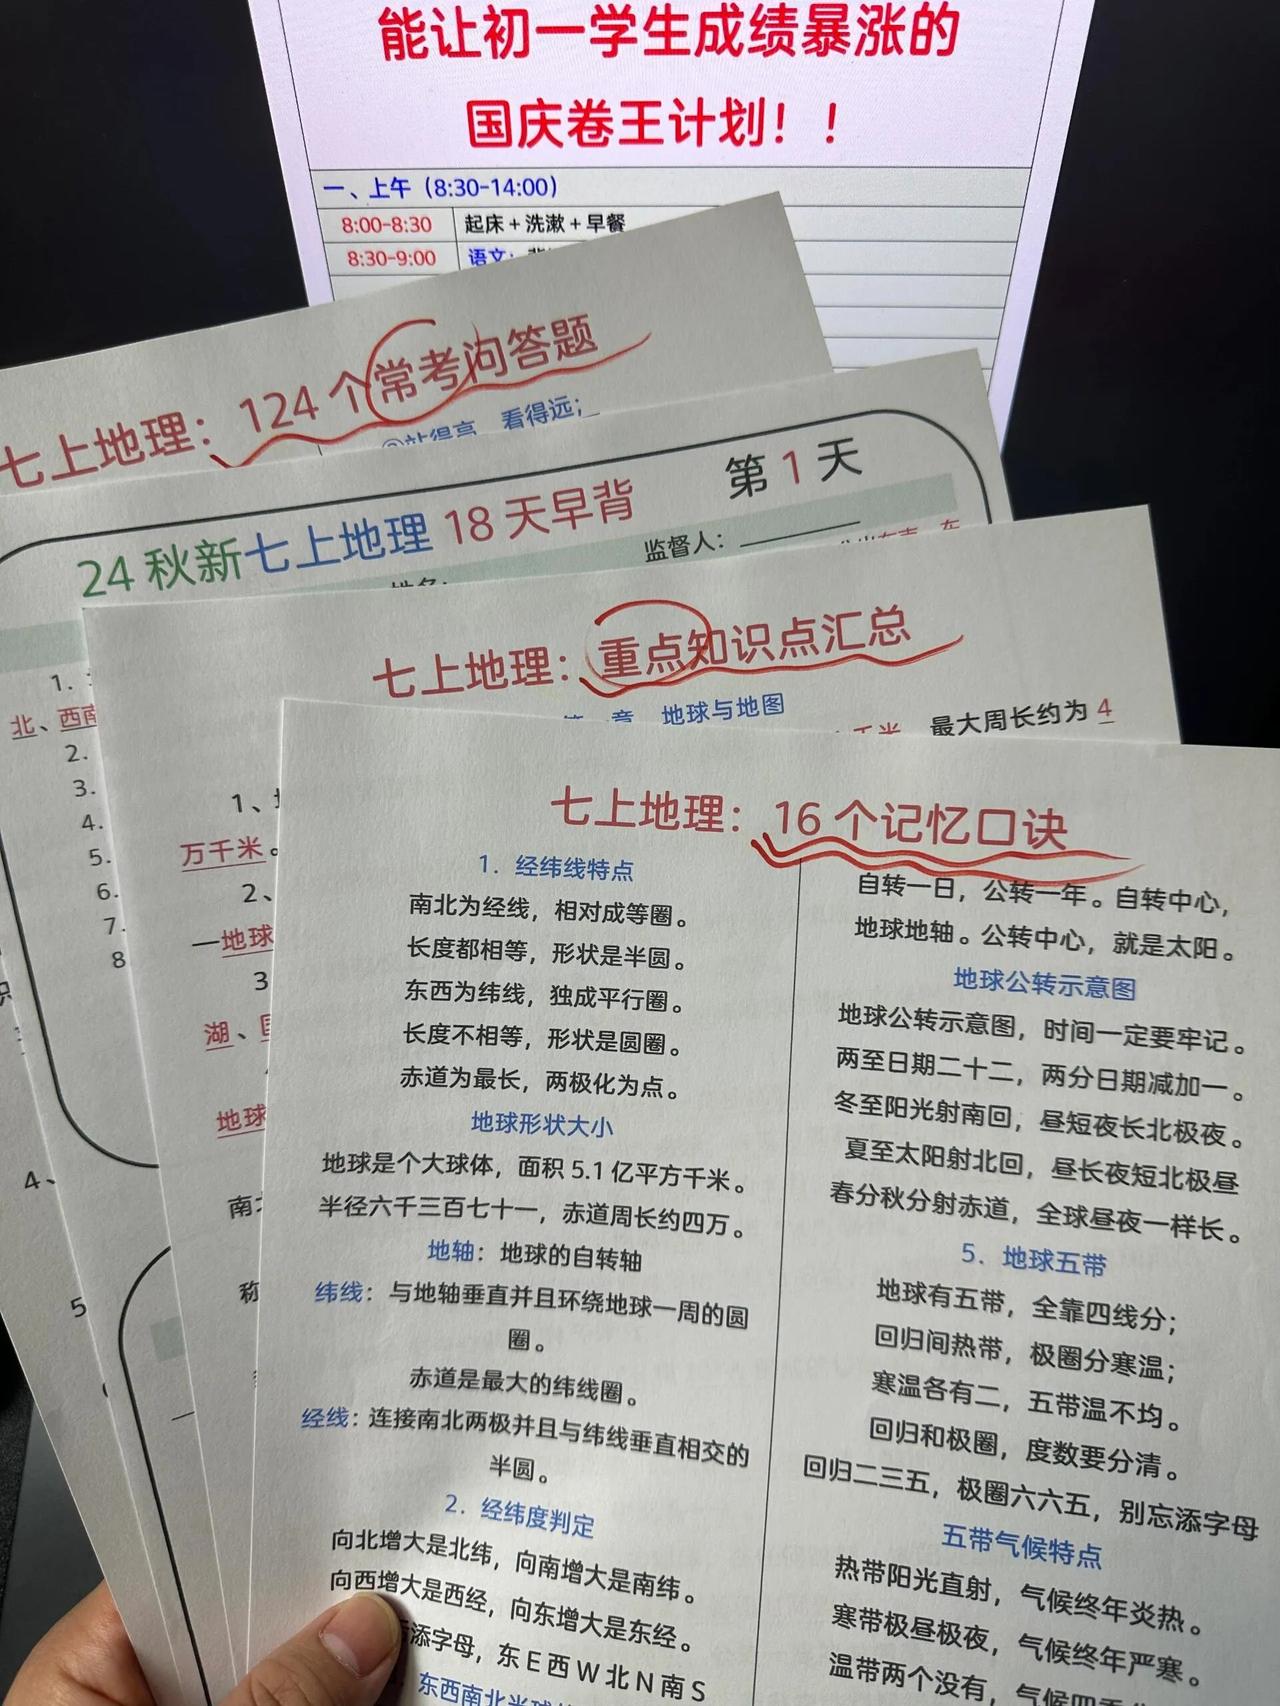 能让初一学生成绩暴涨的
国庆卷王计划！！
一、上午（8:30-14:00）
8:00-8:30 起床+洗漱+早餐
8:30-9:00 语文：
七上地理：124个常考问答题
②站得高，看得远；
24秋新七上地理18天早背 第1天
监督人：
姓名：
七上地理：重点知识点汇总
地球与地图
最大周长约为 4
万千米。
1、
2、
一地球
3
湖、
地球
南
称
1.
北、西南
2.
3.
4.
5.
6.
7.
8
4、
5
七上地理：16个记忆口诀
1. 经纬线特点
南北为经线，相对成等圈。
长度都相等，形状是半圆。
东西为纬线，独成平行圈。
长度不相等，形状是圆圈。
赤道为最长，两极化为点。
地球形状大小
地球是个大球体，面积5.1亿平方千米。
半径六千三百七十一，赤道周长约四万。
地轴：地球的自转轴
纬线：与地轴垂直并且环绕地球一周的圆
圈。
赤道是最大的纬线圈。
经线：连接南北两极并且与纬线垂直相交的
半圆。
2. 经纬度判定
向北增大是北纬，向南增大是南纬。
向西增大是西经，向东增大是东经。
添字母，东E西W北N南S
东西南北半球
自转一日，公转一年。自转中心，
地球地轴。公转中心，就是太阳。
地球公转示意图
地球公转示意图，时间一定要牢记。
两至日期二十二，两分日期减加一。
冬至阳光射南回，昼短夜长北极夜。
夏至太阳射北回，昼长夜短北极昼
春分秋分射赤道，全球昼夜一样长。
5. 地球五带
地球有五带，全靠四线分；
回归间热带，极圈分寒温；
寒温各有二，五带温不均。
回归和极圈，度数要分清。
回归二三五，极圈六六五，别忘添字母
五带气候特点
热带阳光直射，气候终年炎热。
寒带极昼极夜，气候终年严寒。
温带两个没有，气候四季